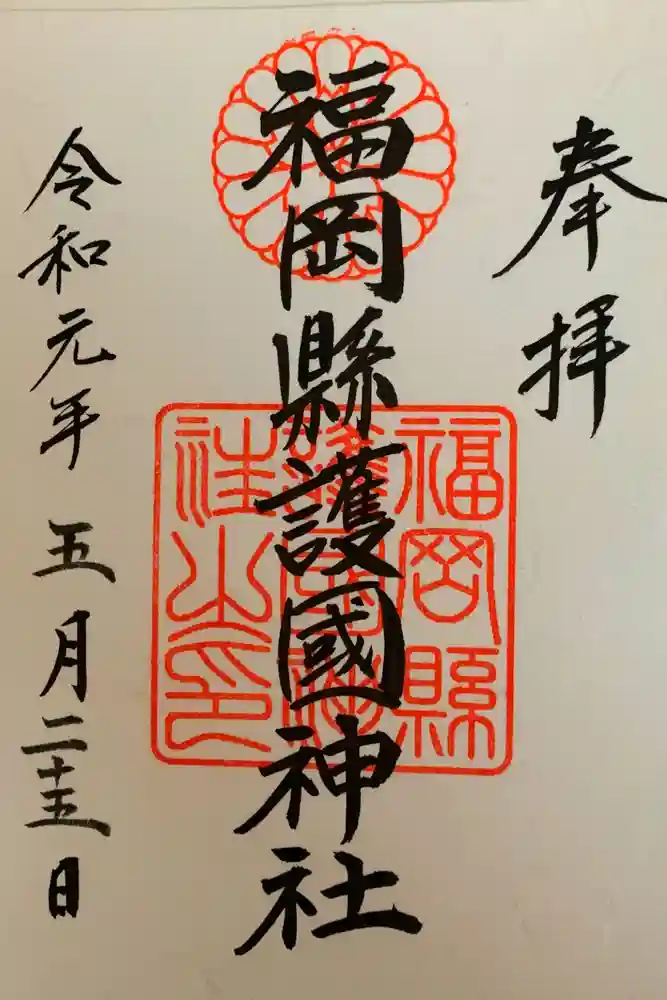 奉拝
福岡縣護國神社
福岡縣
護國神
社之印
令和元年五月二十五日